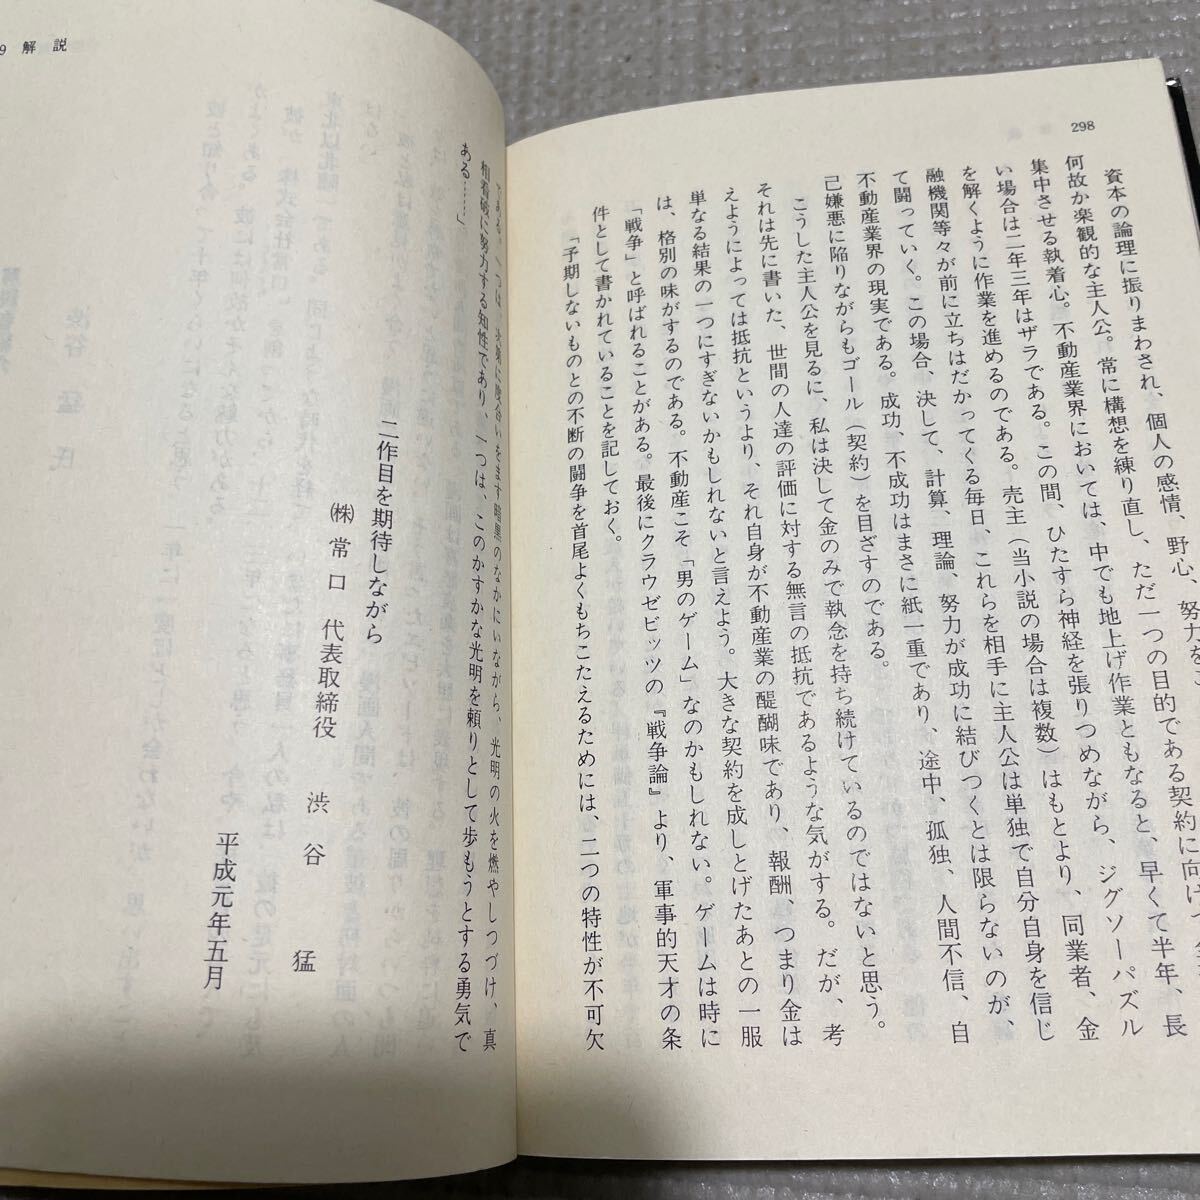 298
資本の論理に振りまわされ、個人の感情、野心、努力を
何故か楽観的な主人公。常に構想を練り直し、ただ一つの目的である契約に向けて
集中させる執着心。不動産業界においては、中でも地上げ作業ともなると、早くて半年、長
い場合は二年三年はザラである。この間、ひたすら神経を張りつめながら、ジグソーパズル
を解くように作業を進めるのである。売主（当小説の場合は複数）はもとより、同業者、金
融機関等々が前に立ちはだかってくる毎日、これらを相手に主人公は単独で自分自身を信じ
て闘っていく。この場合、決して、計算、理論、努力が成功に結びつくとは限らないのが、
不動産業界の現実である。成功、不成功はまさに紙一重であり、途中、孤独、人間不信、自
己嫌悪に陥りながらもゴール（契約）を目ざすのである。
こうした主人公を見るに、私は決して金のみで執念を持ち続けているのではないと思う。
それは先に書いた、世間の人達の評価に対する無言の抵抗であるような気がする。だが、考
えようによっては抵抗というより、それ自身が不動産業の醍醐味であり、報酬、つまり金は
単なる結果の一つにすぎないかもしれないと言えよう。大きな契約を成しとげたあとの一服
は、格別の味がするのである。不動産こそ「男のゲーム」なのかもしれない。ゲームは時に
「戦争」と呼ばれることがある。最後にクラウゼビッツの『戦争論』より、軍事的天才の条
件として書かれていることを記しておく。
「予期しないものとの不断の闘争を首尾よくもちこたえるためには、二つの特性が不可欠
9 解説
である。一つは、次第に度合いをます暗黒のなかにいながら、光明の火を燃やしつづけ、真
相看破に努力する知性であり、一つは、このかすかな光明を頼りとして歩もうとする勇気で
ある……」
二作目を期待しながら
㈱常口 代表取締役 渋谷 猛
平成元年五月